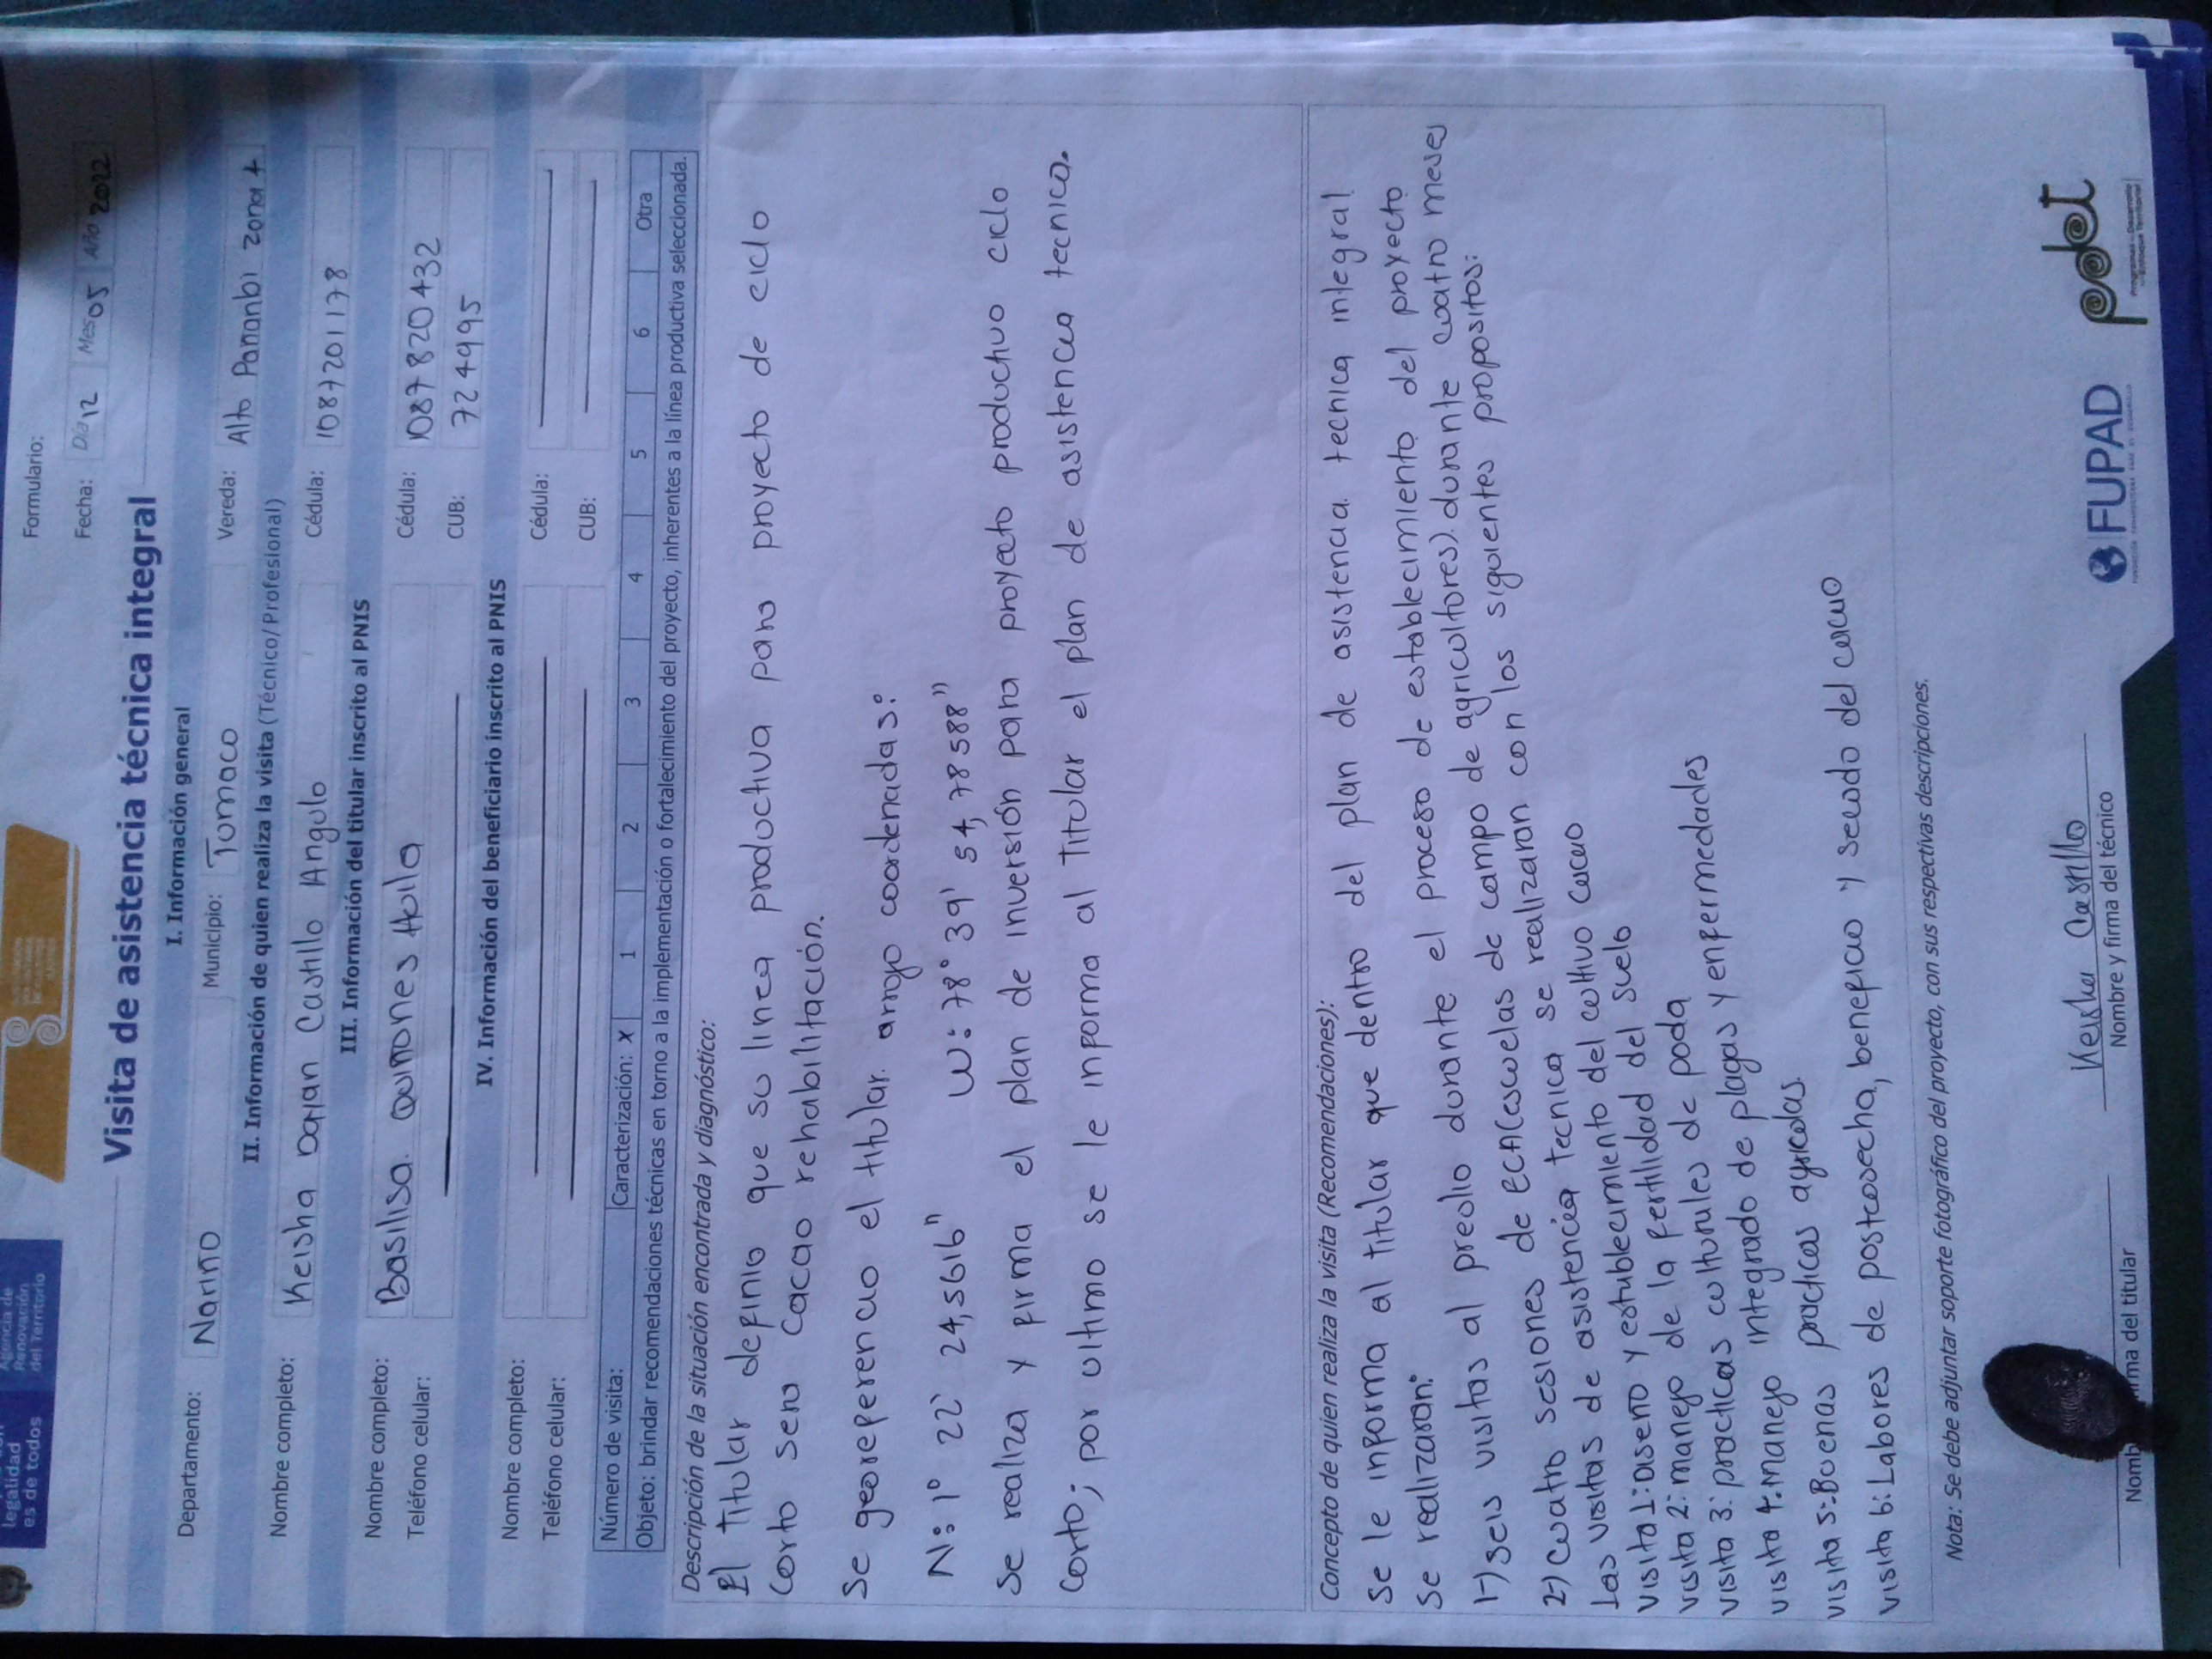 legalidad
es de todos
Agencia de
Renovación
del Territorio
Formulario:
Fecha: Día 12 Mes 05 Año 2022
Visita de asistencia técnica integral
I. Información general
Departamento: Nariño Municipio: Tumaco Vereda: Alto Pananbi zona 4
II. Información de quien realiza la visita (Técnico/Profesional)
Nombre completo: Keisha Dajan Castillo Angulo Cédula: 1087201178
III. Información del titular inscrito al PNIS
Nombre completo: Basilisa Quiñones Cédula: 1087820432
Teléfono celular: CUB: 724995
IV. Información del beneficiario inscrito al PNIS
Nombre completo: Cédula:
Teléfono celular: CUB:
Número de visita: Caracterización: X 1 2 3 4 5 6 Otra
Objeto: brindar recomendaciones técnicas en torno a la implementación o fortalecimiento del proyecto, inherentes a la línea productiva seleccionada.
Descripción de la situación encontrada y diagnóstico:
El Titular definio que su linea productiva para proyecto de ciclo
corto sera Cacao rehabilitación.
Se georeferencio el titular. arrojo coordenadas:
N: 1° 22' 24,5616" W: 78° 39' 54,78588"
Se realiza y firma el plan de inversión para proyecto productivo ciclo
corto; por ultimo se le informa al Titular el plan de asistencia tecnica.
Concepto de quien realiza la visita (Recomendaciones):
Se le informa al titular que dentro del plan de asistencia tecnica integral
se realizaran:
1-) seis visitas al predio durante el proceso de establecimiento del proyecto
2-) Cuatro sesiones de ECA(escuelas de campo de agricultores). durante cuatro meses
Las visitas de asistencia tecnica se realizaran con los siguientes propositos:
visita 1: Diseño y establecimiento del cultivo cacao
visita 2: manejo de la fertilidad del suelo
visita 3: practicas culturales de poda
visita 4: manejo integrado de plagas y enfermedades
visita 5: Buenas practicas agricolas.
visita 6: Labores de postcosecha, beneficio y secado del cacao
Nota: Se debe adjuntar soporte fotográfico del proyecto, con sus respectivas descripciones.
Keisha Castillo
firma del titular Nombre y firma del técnico
FUPAD
pdet
Programas de Desarrollo
con Enfoque Territorial